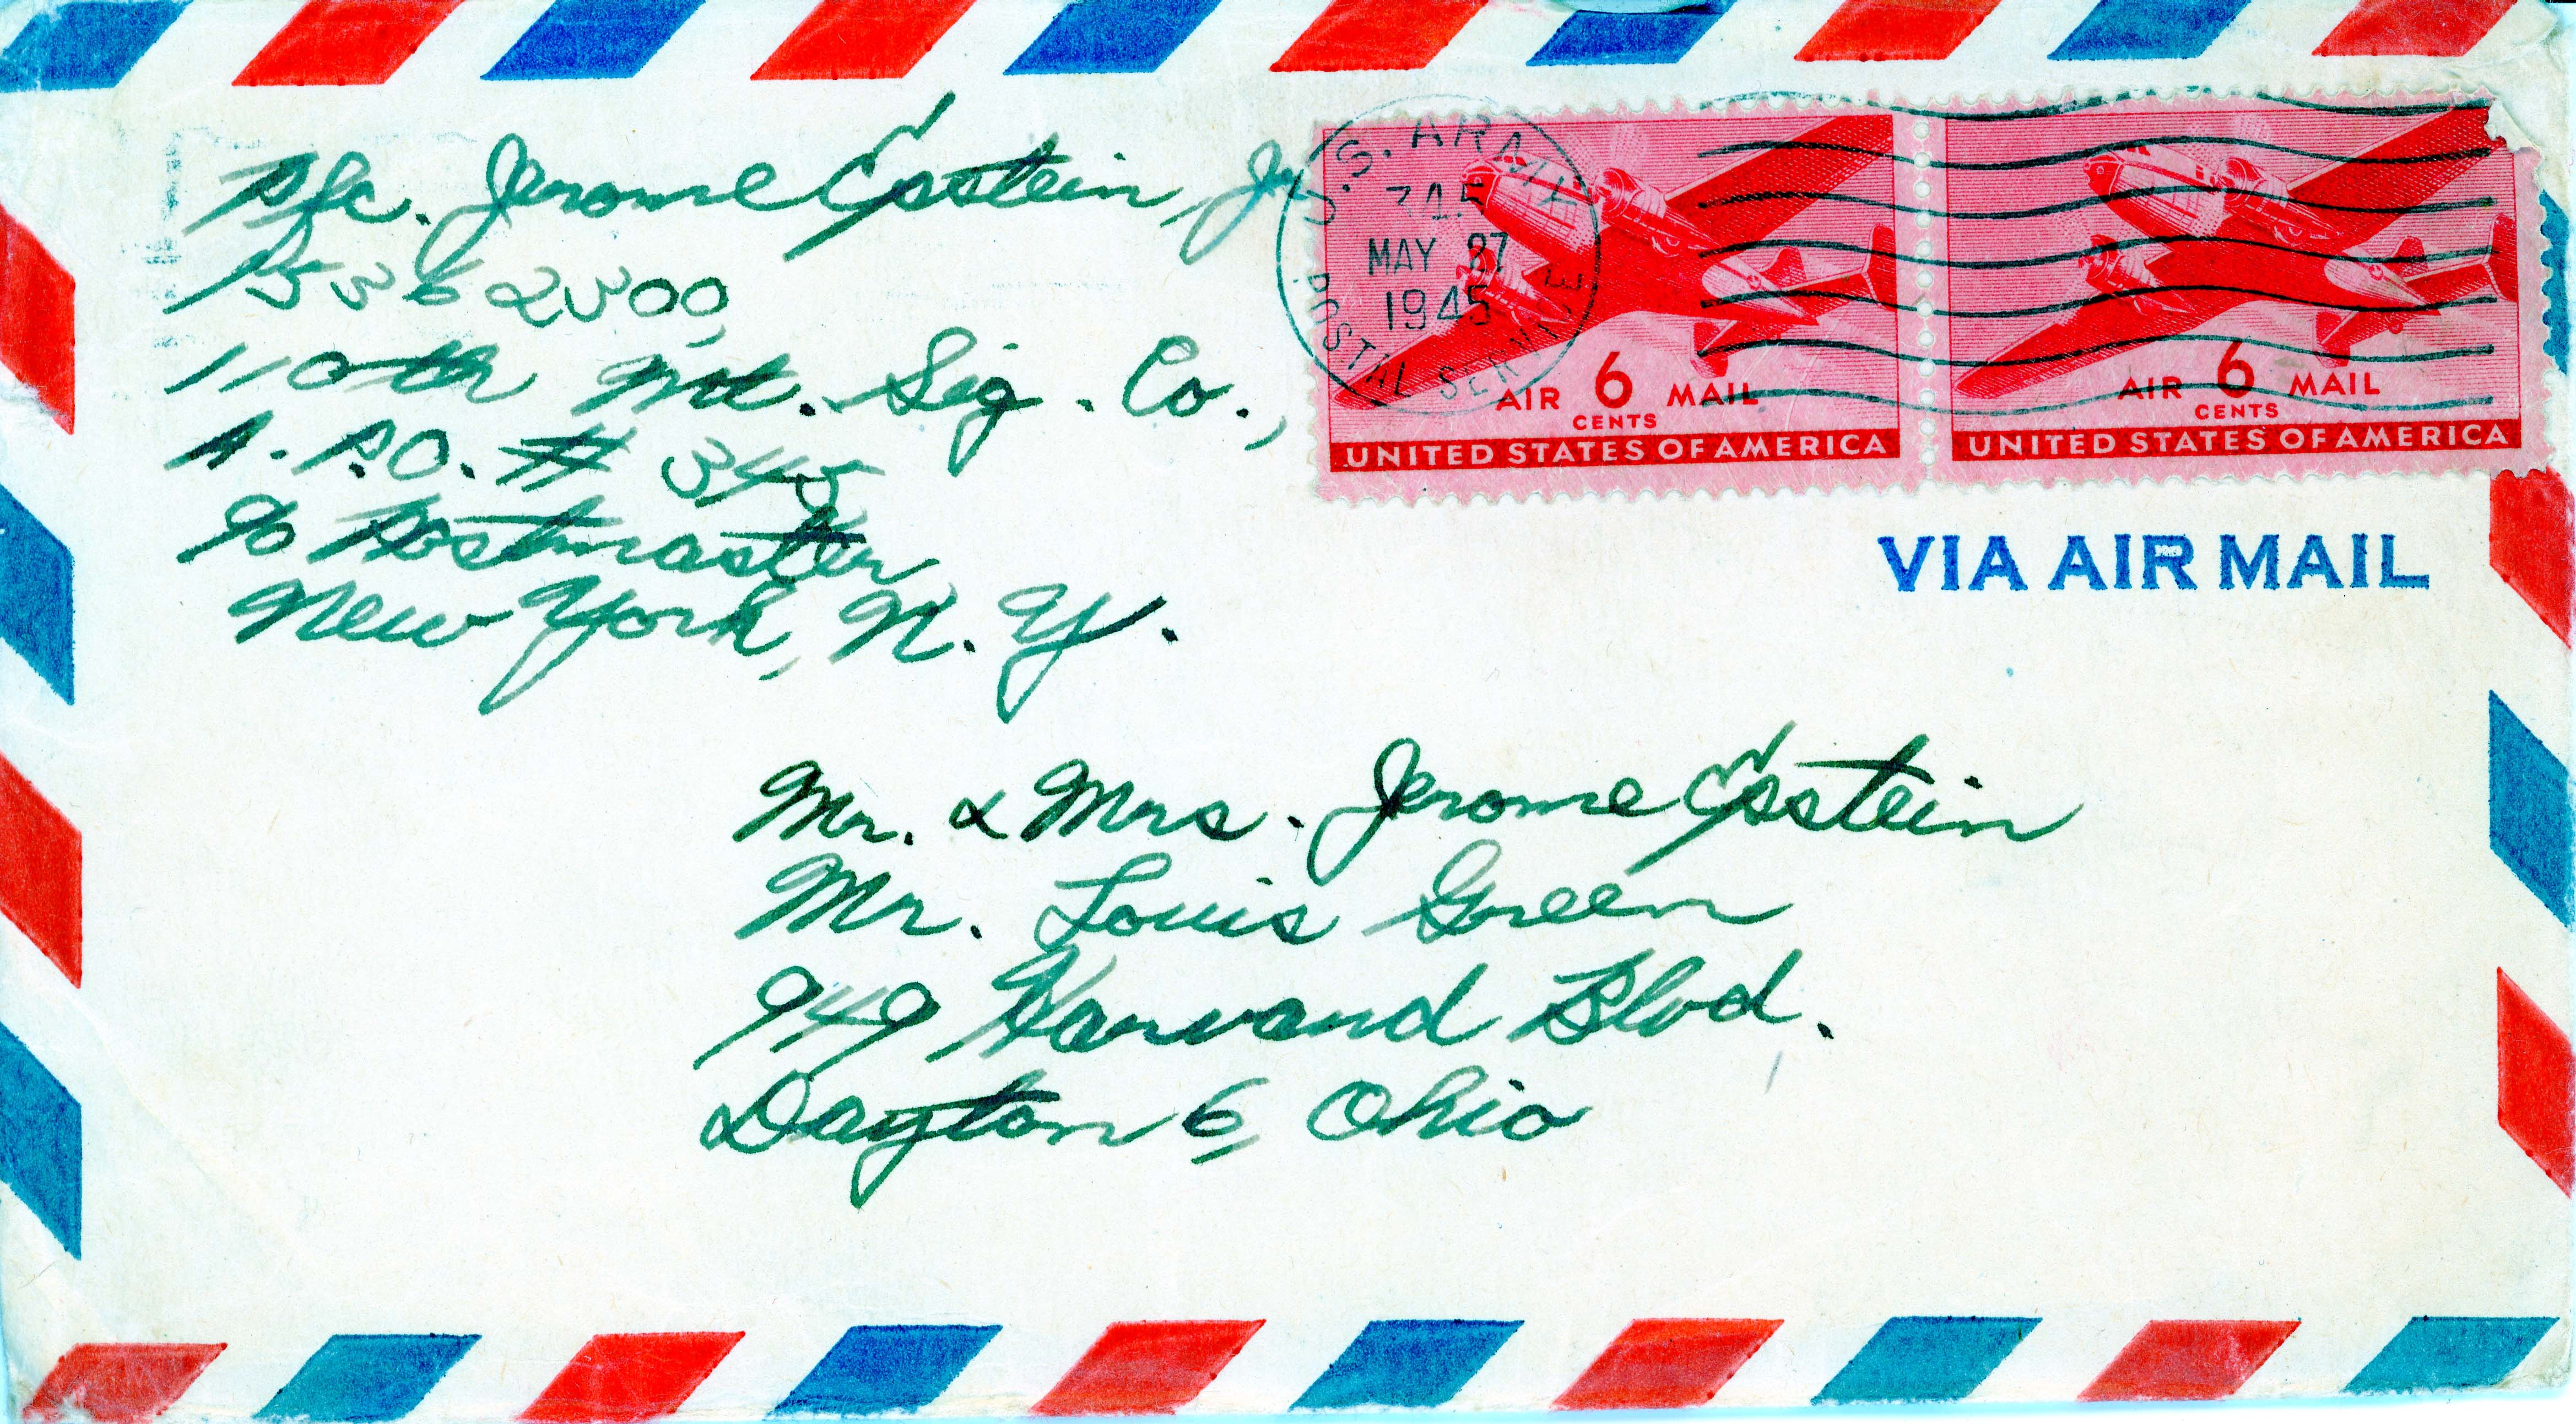 Pfc. Jerome Epstein, Jr.
110th Md. Sig. Co.,
A.P.O. # 345
c/o Postmaster
New York, N.Y.
U.S. ARMY
345
MAY 27
1945
POSTAL SERVICE
AIR 6 MAIL
CENTS
UNITED STATES OF AMERICA
AIR 6 MAIL
CENTS
UNITED STATES OF AMERICA
VIA AIR MAIL
Mr. & Mrs. Jerome Epstein
Mr. Louis Green
949 Harvard Blvd.
Dayton 6, Ohio